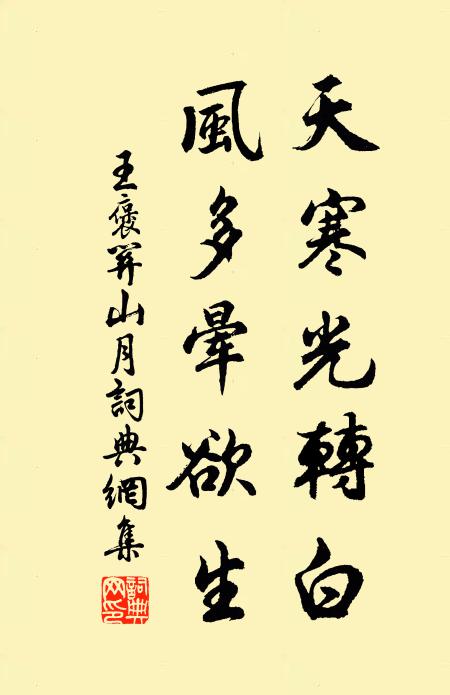 天寒光轉白
風多暈欲生
王褒關山月詞典網集
詞典網印